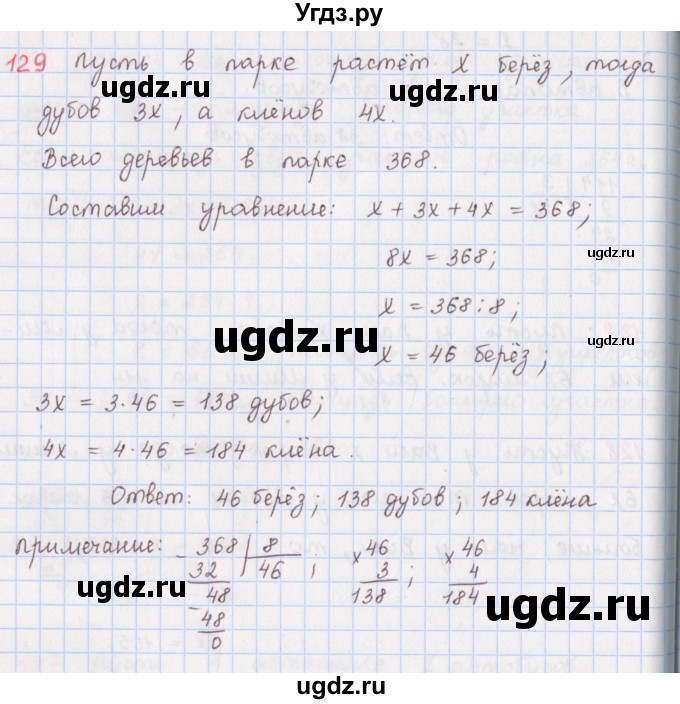 Угдз.ру
129 Пусть в парке растёт x берёз, тогда
дубов 3x, а клёнов 4x.
Всего деревьев в парке 368.
Составим уравнение: x + 3x + 4x = 368;
8x = 368;
x = 368 : 8;
x = 46 берёз;
3x = 3·46 = 138 дубов;
4x = 4·46 = 184 клёна.
Ответ: 46 берёз; 138 дубов; 184 клёна
примечание: 368 | 8 , ×46 ; ×46
32 46 3 4
48 138 184
48
0
ugdz.ru
ugdz.ru
ugdz.ru
ugdz.ru
ugdz.ru
ugdz.ru
ugdz.ru
ugdz.ru
ugdz.ru